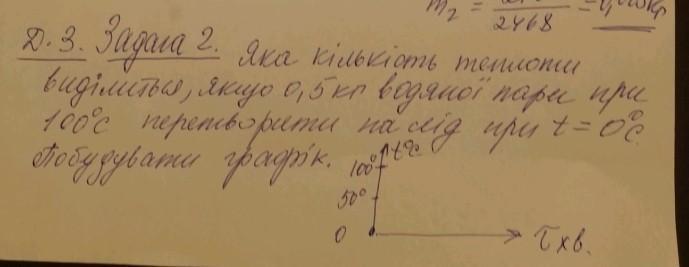 m₂ = 2468 =
Д.З. Задача 2. Яка кількість теплоти
виділиться, якщо 0,5кг водяної пари при
100°С перетворити на лід при t = 0°С.
Побудувати графік.
t°С
100°
50°
0
τ хв.